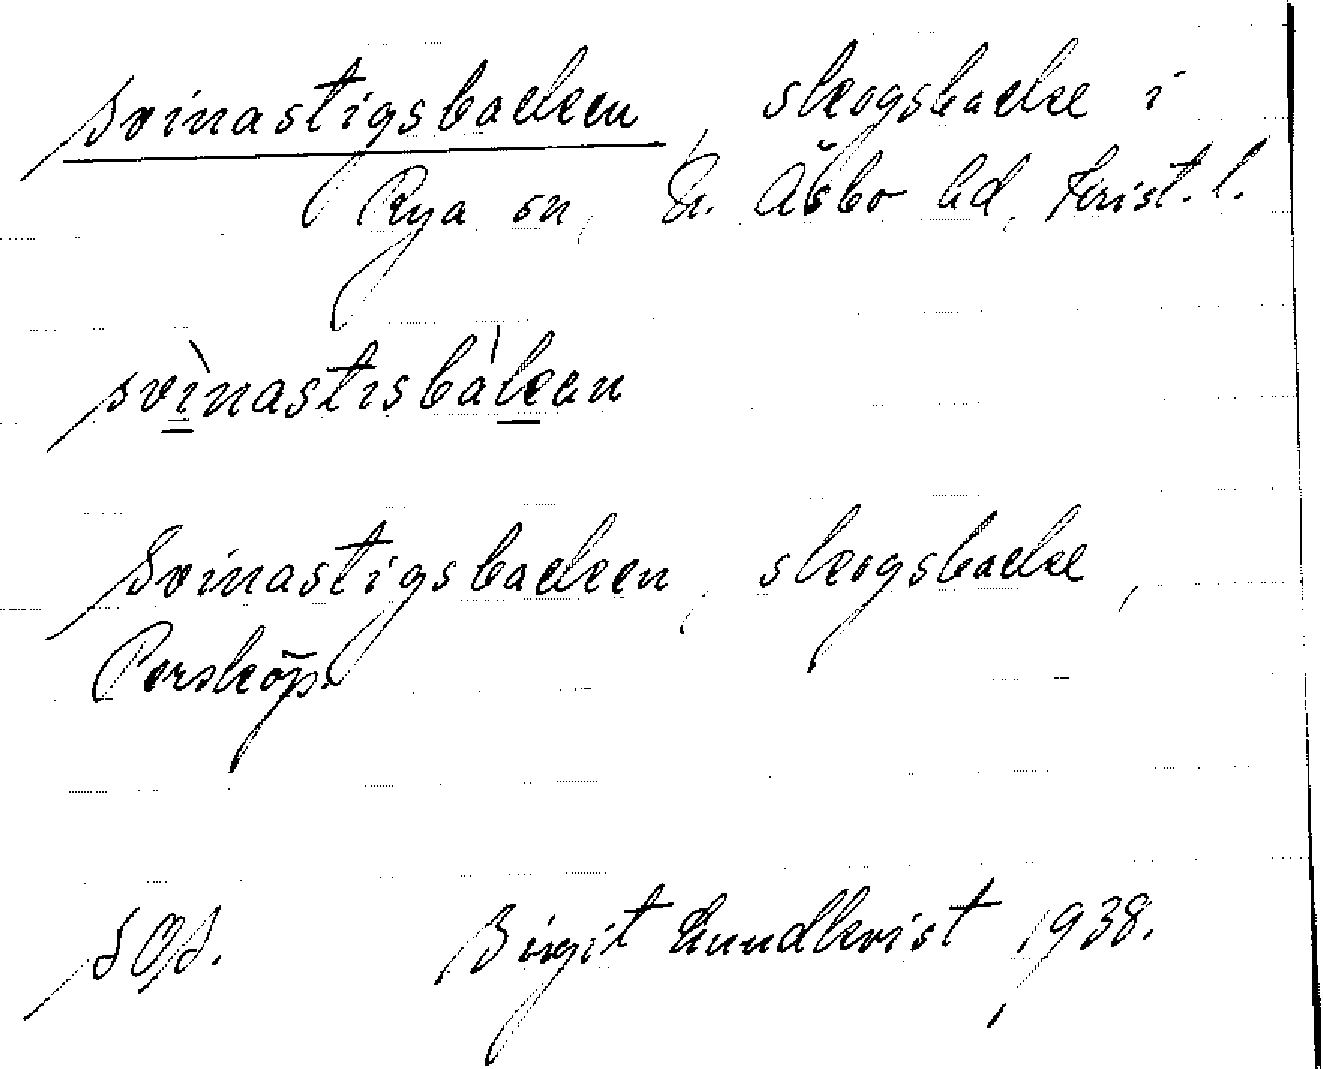 svinastigsbacken, skogsbacke i
Rya sn, N. Åsbo hd, Krist. l.
svìnastisbàkan
Svinastigsbacken, skogsbacke,
Perskōp.
SOS. Birgit Lundkvist 1938.